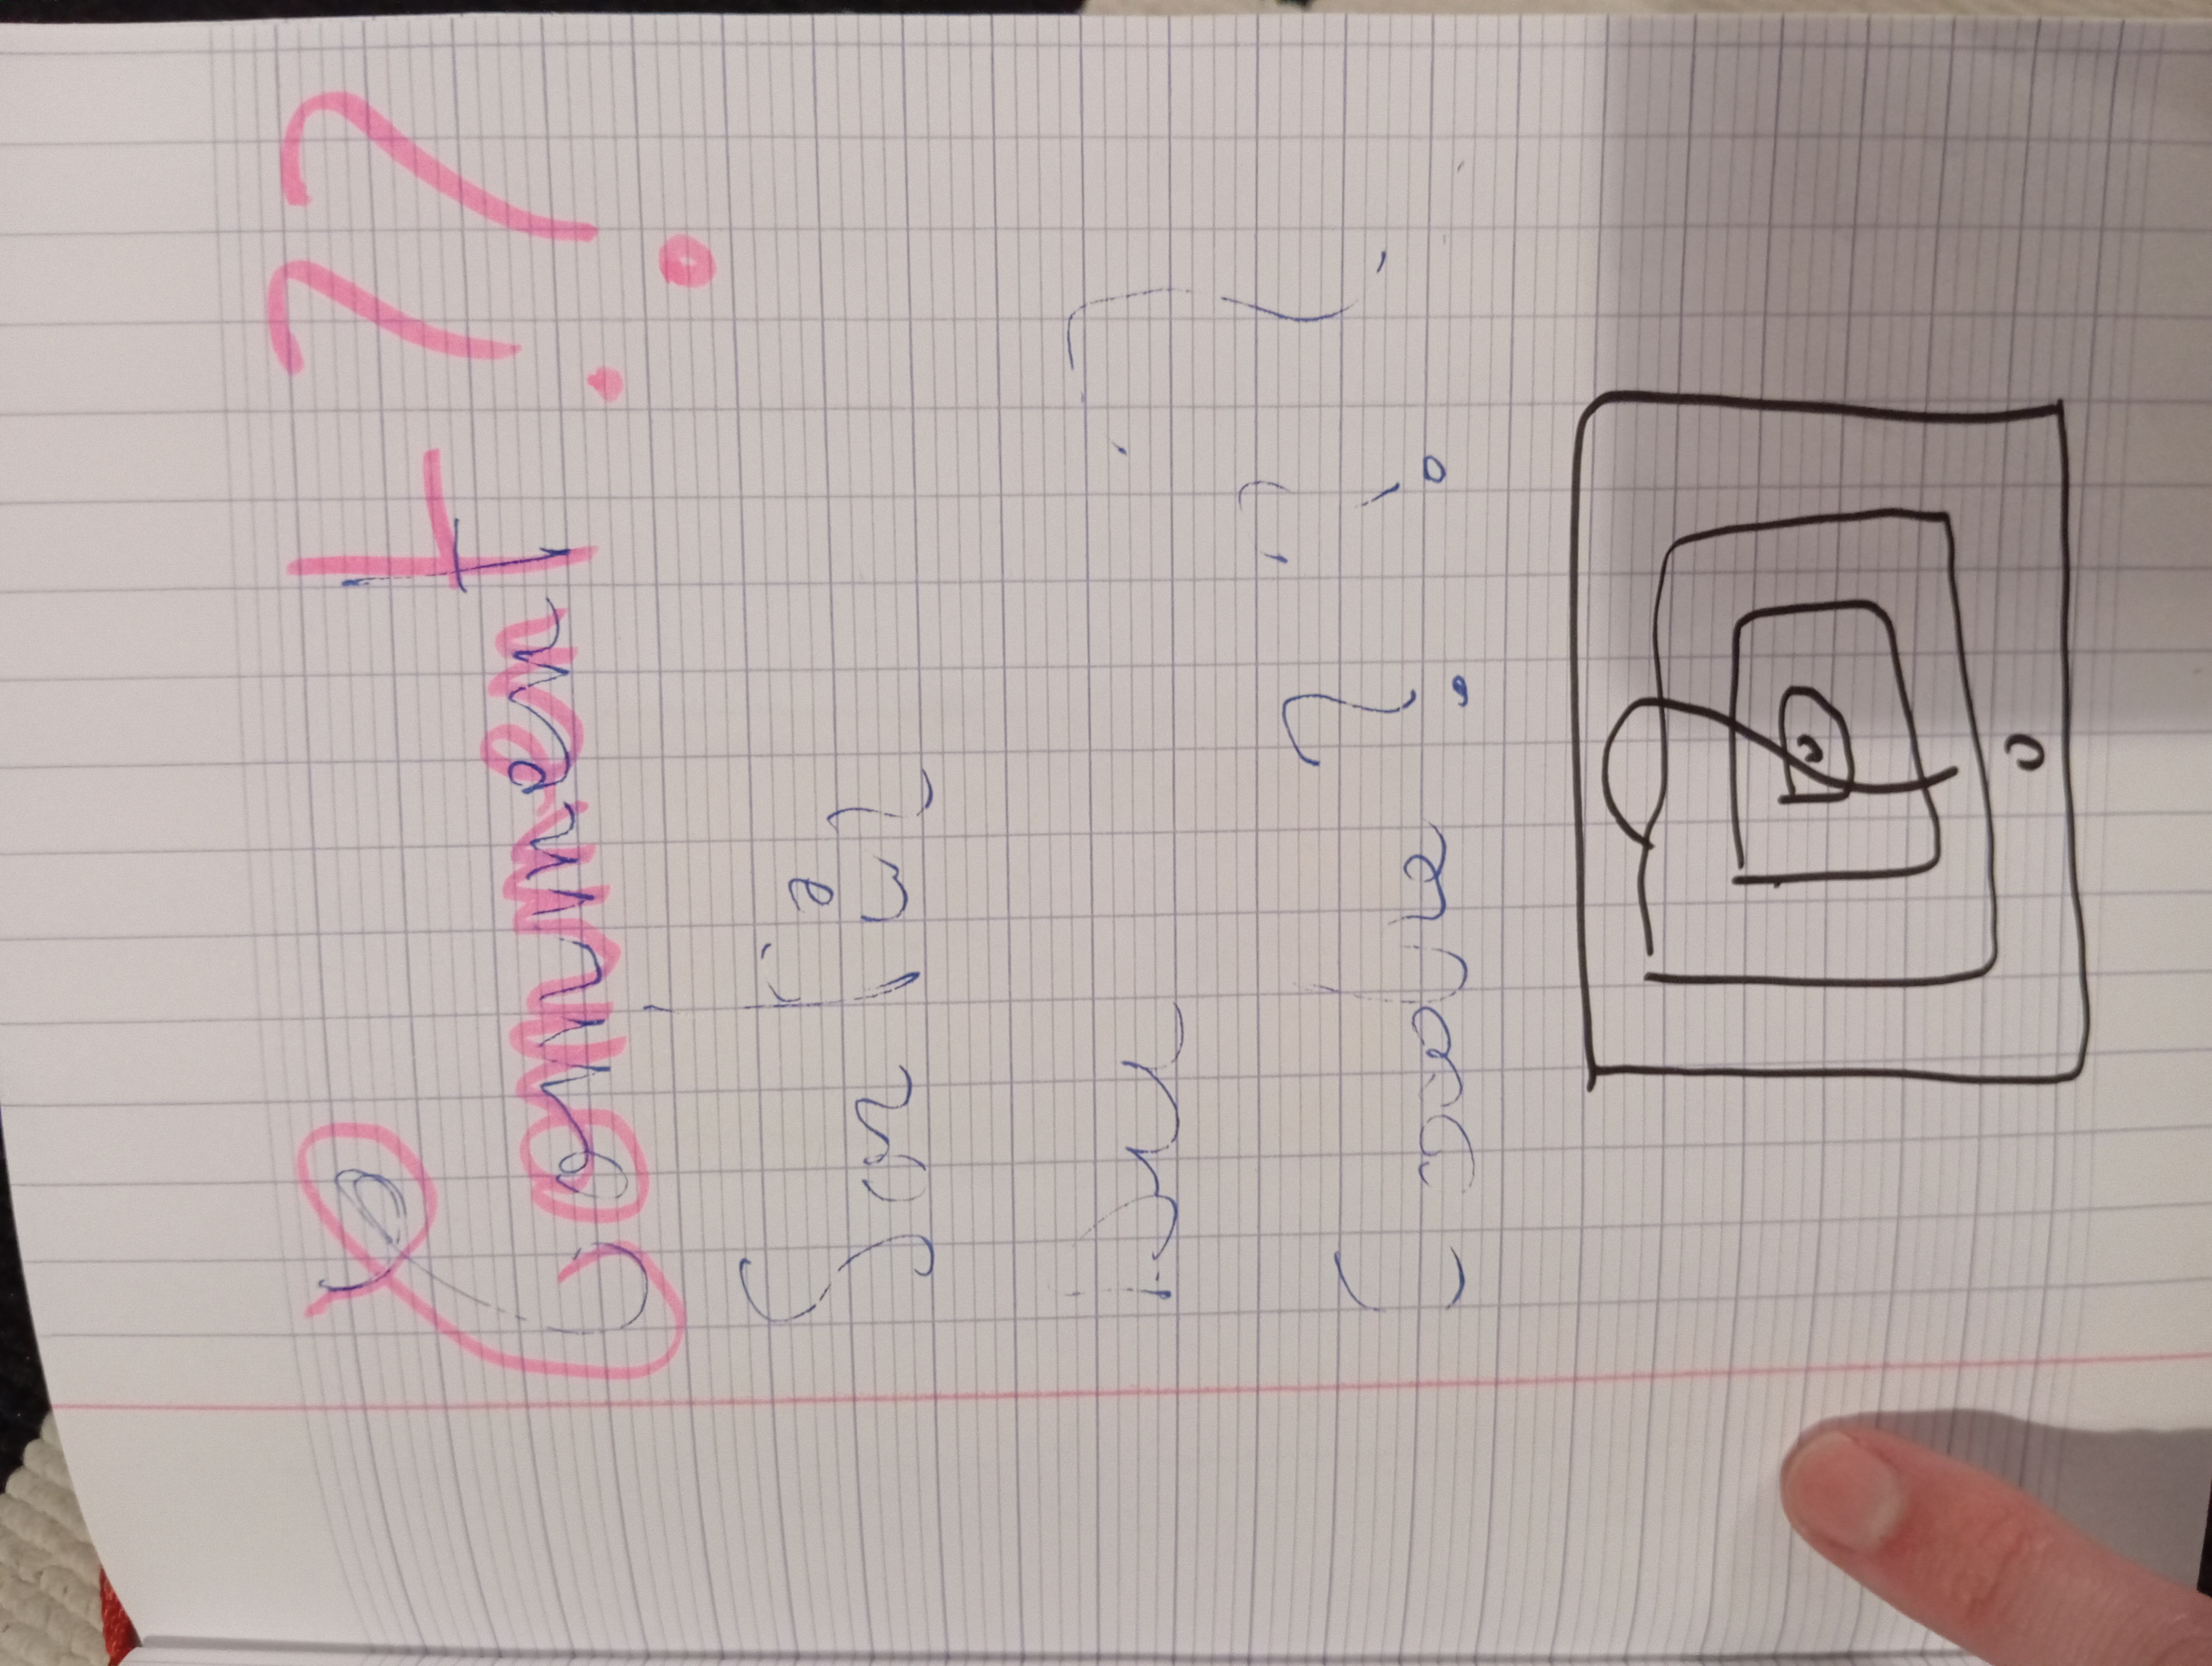 Comment ??
Sortir
Du
Cadre ? ? ?
?